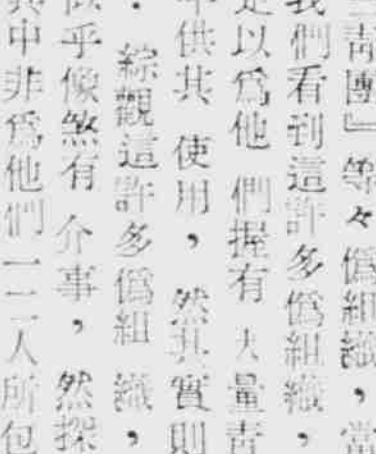 青團』等々僞組織，當
我們看到這許多僞組織，
是以爲他們握有大量青
中供其使用，然其實則
綜觀這許多僞組織，
似乎像煞有介事，然探
其中非爲他們一二人所包